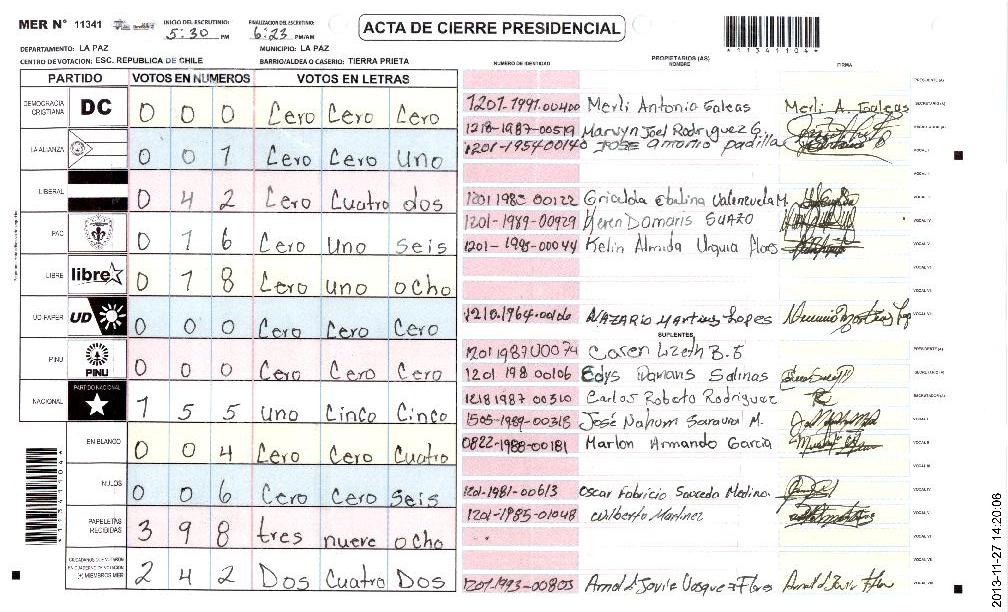 MER N° 11341 INICIO DEL ESCRUTINIO: 5:30 PM FINALIZACION DEL ESCRUTINIO: 6:23 PM/AM
ACTA DE CIERRE PRESIDENCIAL
11341104
DEPARTAMENTO: LA PAZ MUNICIPIO: LA PAZ
CENTRO DE VOTACION: ESC. REPUBLICA DE CHILE BARRIO/ALDEA O CASERIO: TIERRA PRIETA
NUMERO DE IDENTIDAD PROPIETARIOS (AS) NOMBRE FIRMA
PARTIDO VOTOS EN NUMEROS VOTOS EN LETRAS
DEMOCRACIA CRISTIANA DC 0 0 0 Cero Cero Cero
LA ALIANZA 0 0 1 Cero Cero uno
LIBERAL 0 4 2 Cero Cuatro dos
PAC 0 1 6 Cero Uno Seis
LIBRE libre 0 1 8 Cero uno ocho
UD-FAPER UD 0 0 0 Cero Cero Cero
PINU PINU 0 0 0 Cero Cero Cero
NACIONAL PARTIDO NACIONAL 1 5 5 uno Cinco Cinco
EN BLANCO 0 0 4 Cero Cero Cuatro
NULOS 0 0 6 Cero Cero Seis
PAPELETAS RECIBIDAS 3 9 8 tres nueve ocho
CIUDADANOS QUE VOTARON EN CUADERNO DE VOTACION (+) MIEMBROS MER 2 4 2 Dos Cuatro Dos
PRESIDENTE (A)
1201-1991-00400 Merli Antonio Galeas Merli A. Galeas SECRETARIO (A)
1218-1987-00519 Marvyn Joel Rodriguez G.
1201-1954-00140 JOSE antonio padilla VOCAL I
Gricelda Valenzuela M.
1201-1989-00929 Keren Damaris SUAZO
1201-1995-00044 Kelin Almida Urquia Flores
NAZARIO Martines Lopes
SUPLENTES
Caren Lizeth B. PRESIDENTE (A)
1201 198 00106 Edys Salinas SECRETARIO (A)
1218 1987 00310 Carlos Roberto Rodriguez
1505-1989-00318 José Nahum M.
0822-1988-00181 Marlon Armando Garcia
1201-1981-00613 Oscar Fabricio Sauceda Medina
1201-1985-01048 Wilberto Martinez
1201-1993-00803 Arnold Javier Vasquez Flores
2013-11-27 14:20:06